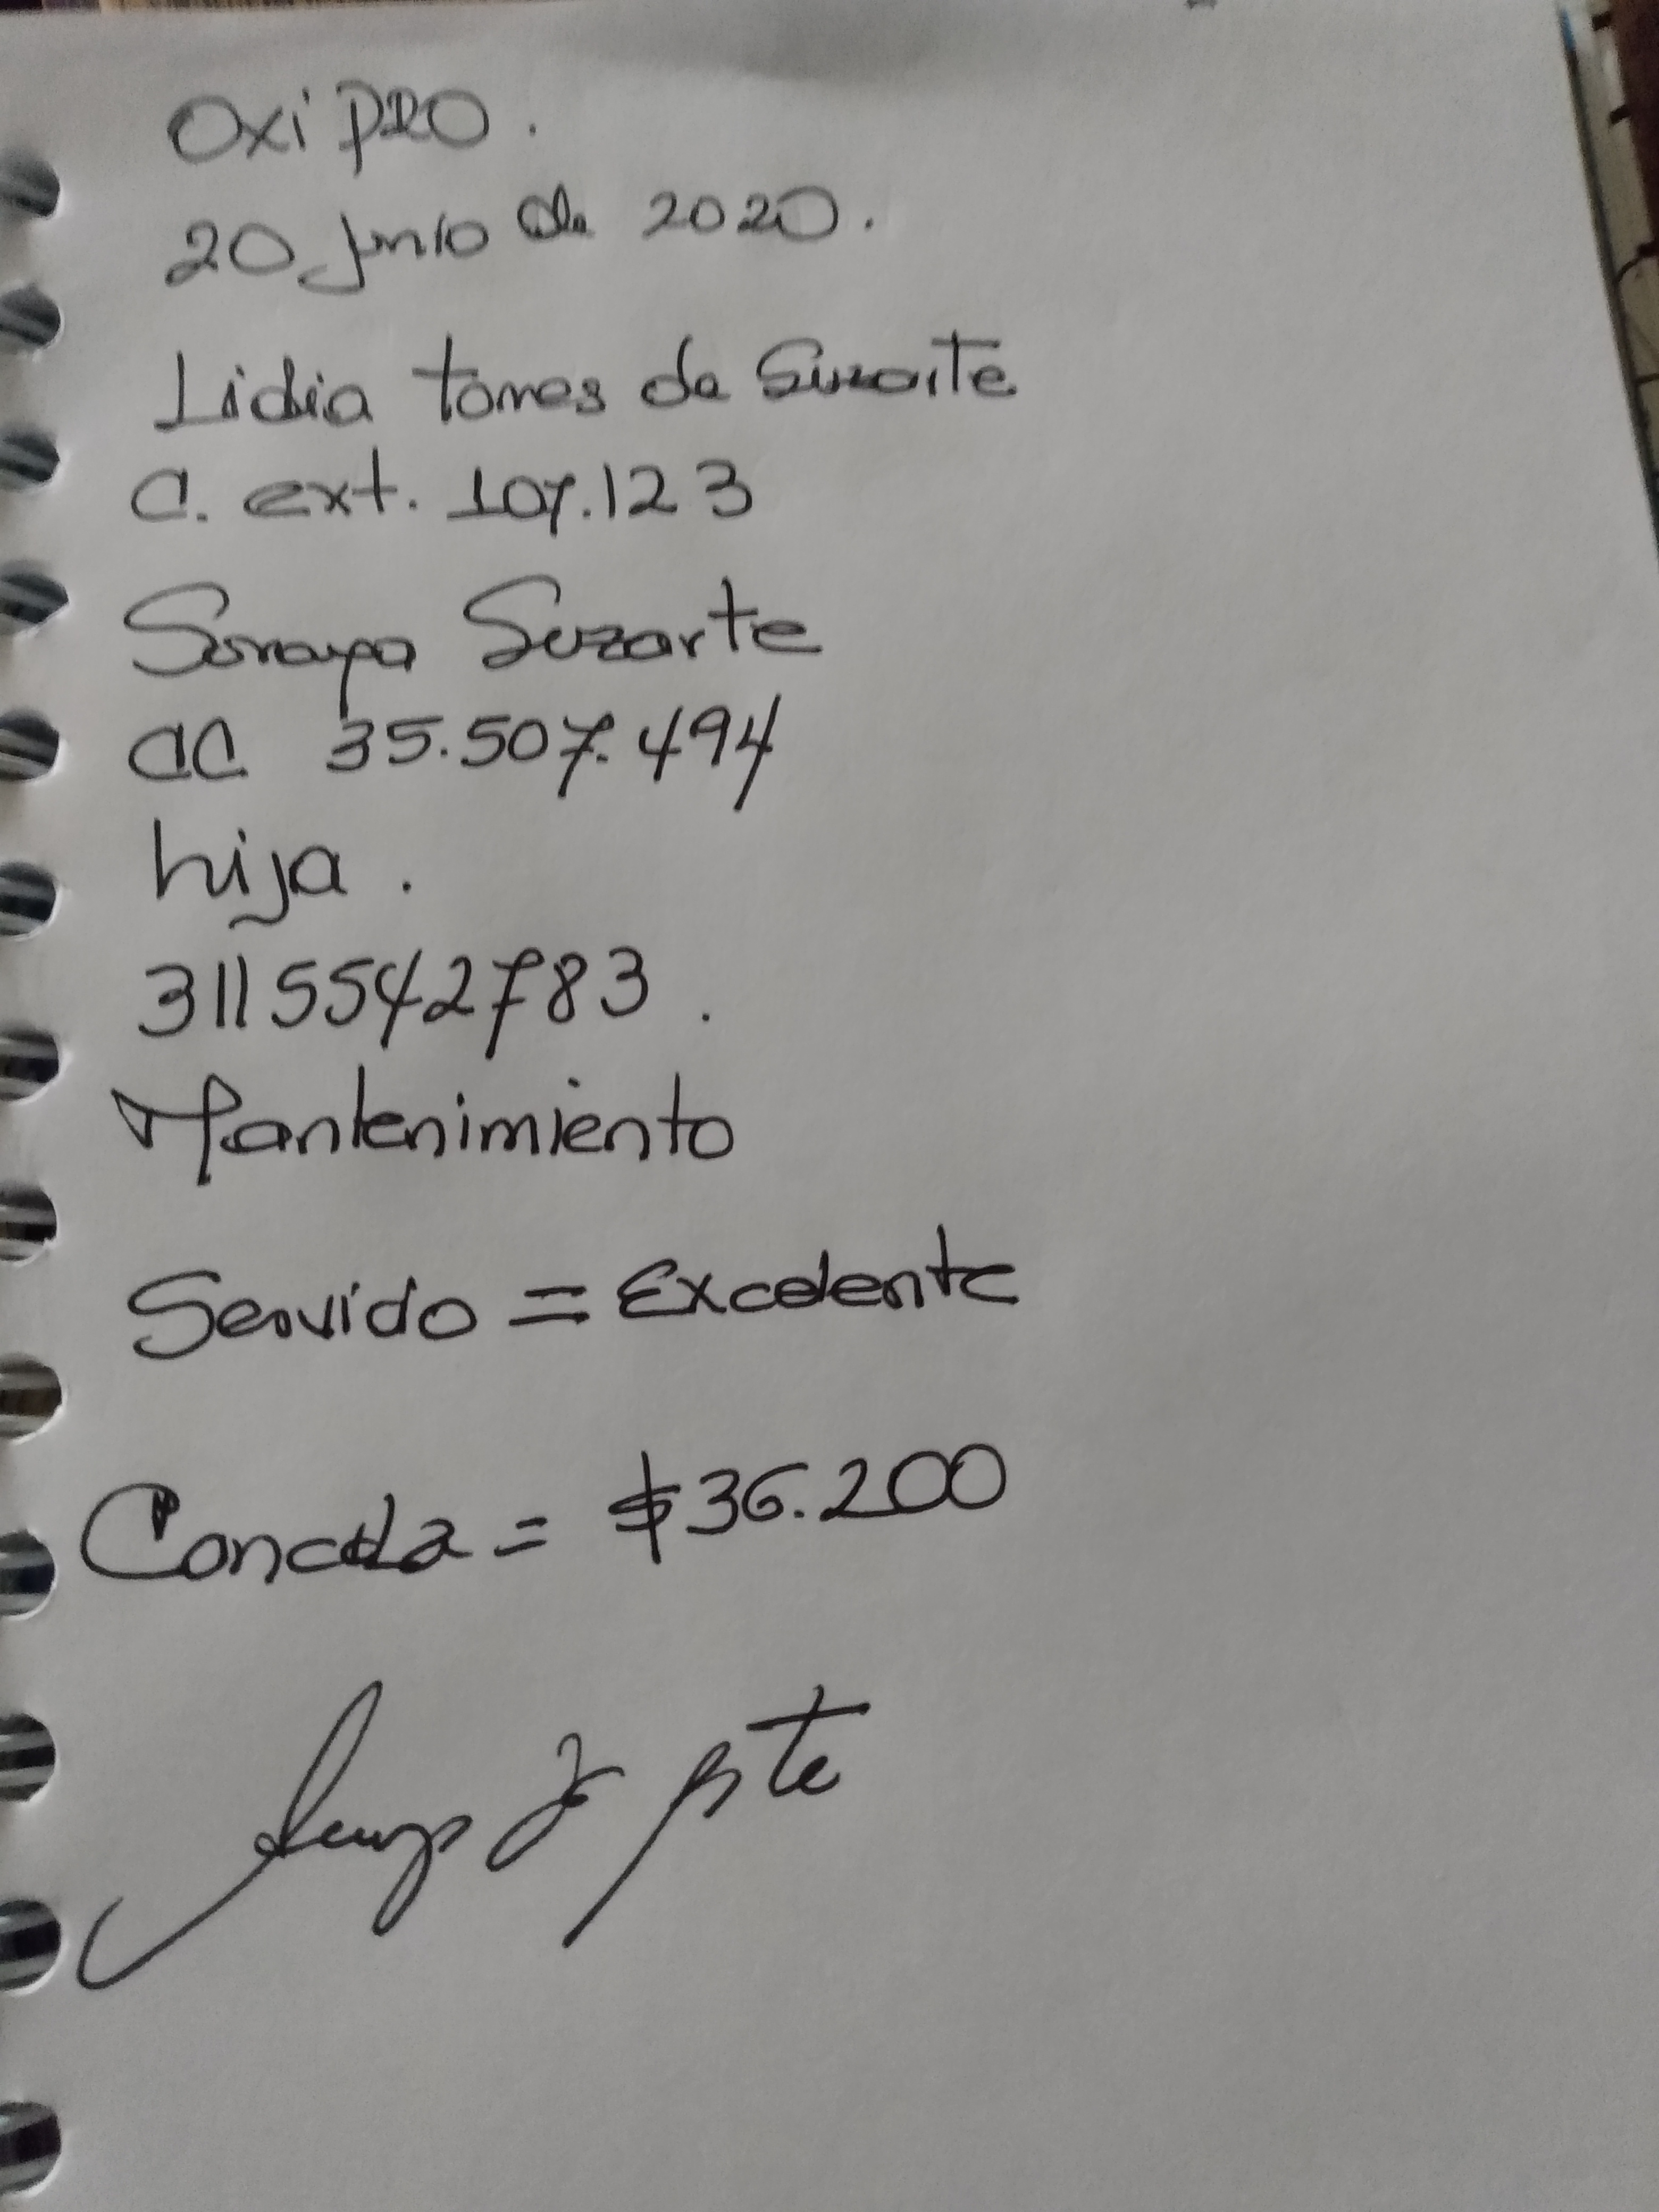 Oxi PRO.
20 Junio de 2020.
Lidia torres de Suzarte
C. ext. 107.123
Soraya Suzarte
CC 35.507.494
hija.
3115542783.
Mantenimiento
Servido = Excelente
Cancela = $36.200